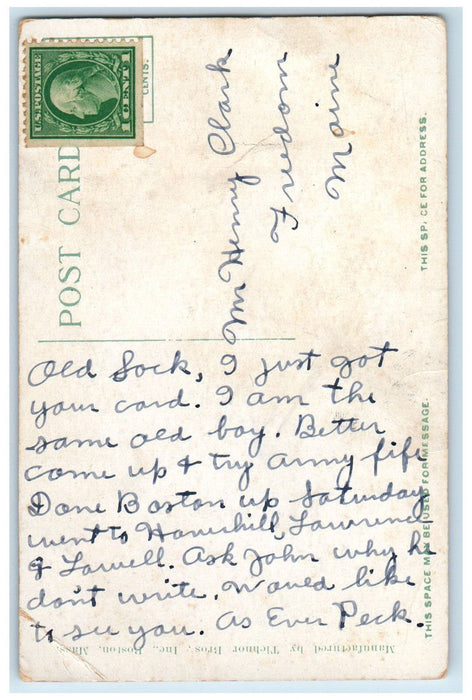 U.S. POSTAGE
1 CENT 1
CENTS.
POST CARD
THIS SP, CE FOR ADDRESS.
Mr Henry Clark
Freedom
Maine
Old Sock, I just got
your card. I am the
same old boy. Better
come up & try army fife
Done Boston up Saturday
went to Haverhill, Lawrence
& Lowell. Ask John why he
don't write. Would like
to see you. As Ever Peck.
THIS SPACE MAY BE USED FOR MESSAGE.
Manufactured by Tichnor Bros., Inc., Boston, Mass.